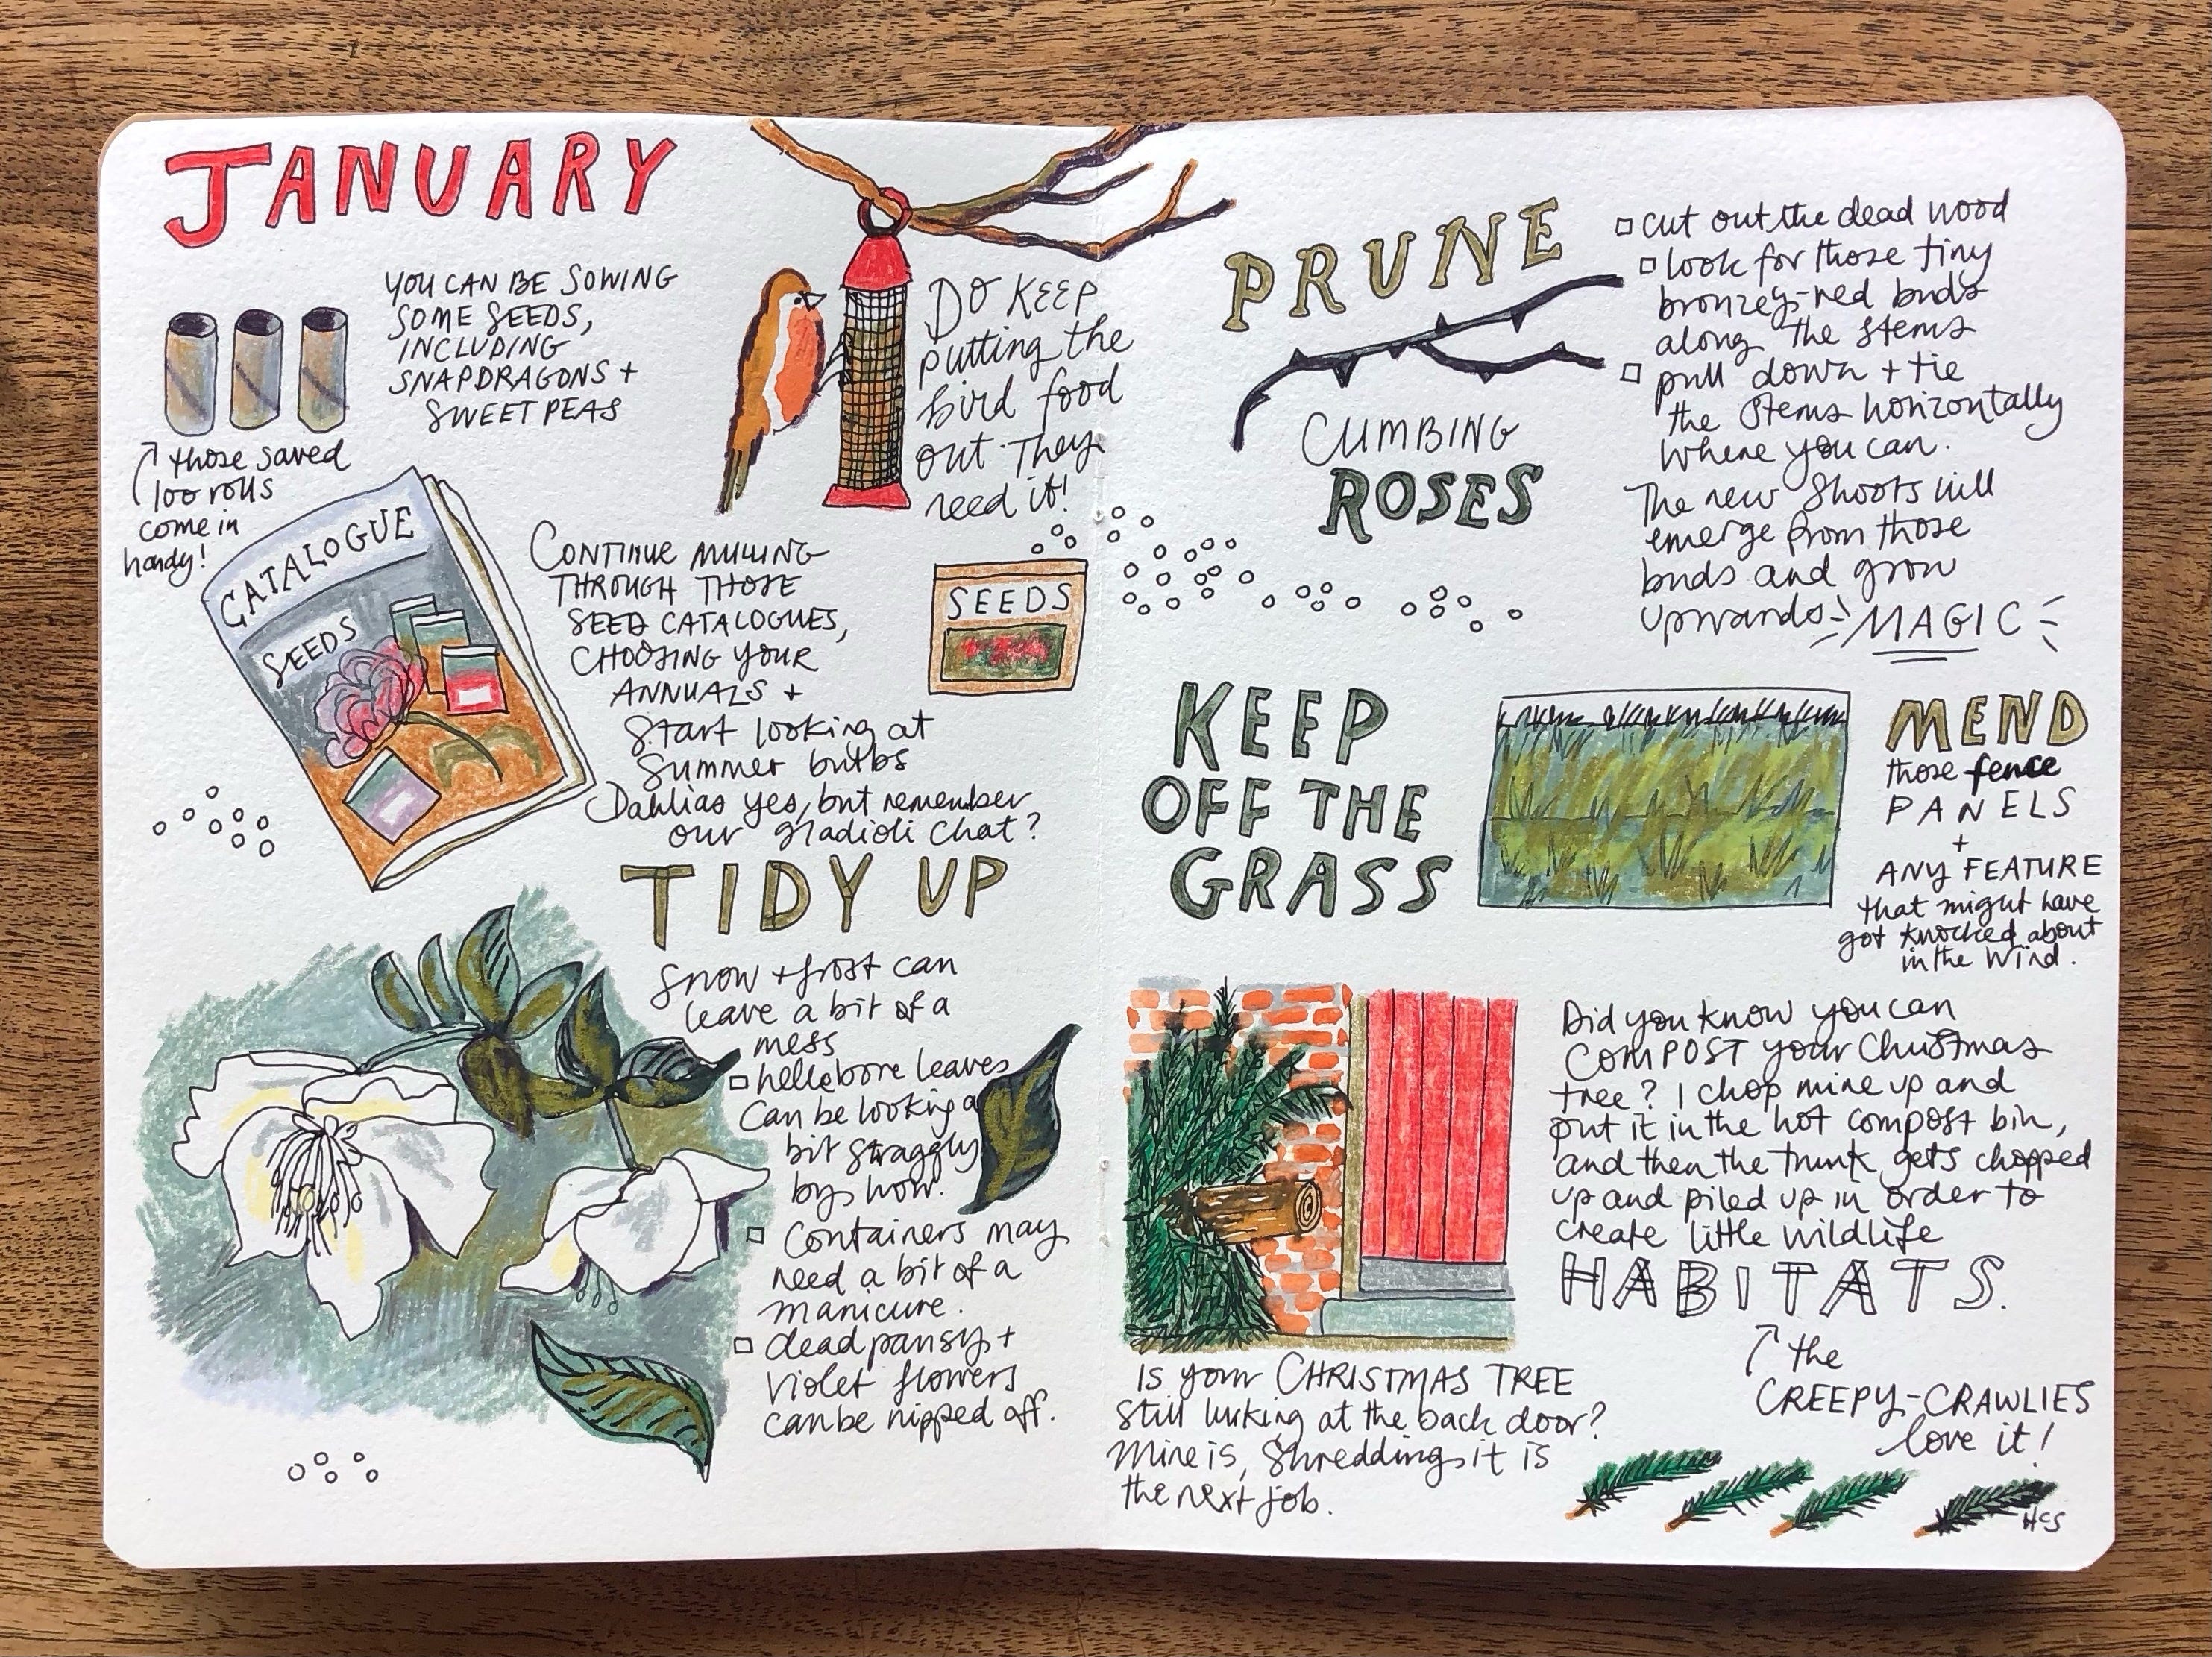 JANUARY
YOU CAN BE SOWING
SOME SEEDS,
INCLUDING
SNAPDRAGONS +
SWEET PEAS
those saved
loo rolls
come in
handy!
DO KEEP
putting the
bird food
out. They
need it!
CATALOGUE
SEEDS
CONTINUE MULLING
THROUGH THOSE
SEED CATALOGUES,
CHOOSING YOUR
ANNUALS +
Start looking at
Summer bulbs
Dahlias yes, but remember
our gladioli chat?
SEEDS
TIDY UP
Snow + frost can
leave a bit of a
mess
hellebore leaves
Can be looking a
bit straggly
by now.
Containers may
need a bit of a
manicure.
dead pansy +
violet flowers
can be nipped off.
PRUNE
CLIMBING
ROSES
cut out the dead wood
look for those tiny
bronzey-red buds
along the stems
pull down + tie
the stems horizontally
where you can.
The new shoots will
emerge from those
buds and grow
upwards MAGIC
KEEP
OFF THE
GRASS
MEND
those fence
PANELS
+
ANY FEATURE
that might have
got knocked about
in the wind.
Did you know you can
COMPOST your Christmas
tree? I chop mine up and
put it in the hot compost bin,
and then the trunk gets chopped
up and piled up in order to
create little wildlife
HABITATS.
the
CREEPY-CRAWLIES
love it!
Is your CHRISTMAS TREE
still lurking at the back door?
Mine is, Shredding it is
the next job.
HCS